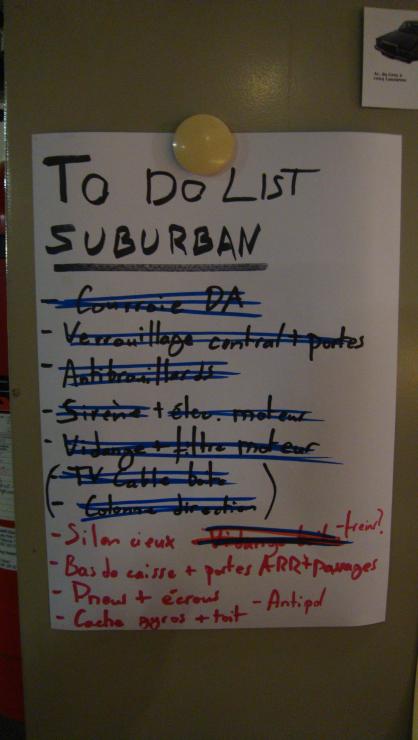 TO DO LIST
SUBURBAN
- Courroie DA
- Verrouillage central + portes
- Antibrouillards
- Sirène + élec. moteur
- Vidange + filtre moteur
(- TV Cable
- Colonne direction)
- Silencieux Vidange - freins?
- Bas de caisse + portes ARR + passages
- Pneus + écrous - Antipol
- Cache gyros + toit